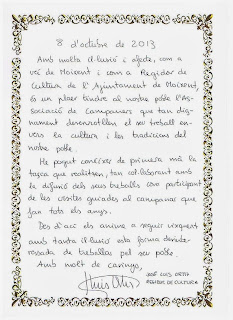 8 d'octubre de 2013
Amb molta il·lusió i afecte, com a
veí de Moixent i com a Regidor de
Cultura de l'Ajuntament de Moixent,
és un plaer tindre al nostre poble l'As-
sociació de Campaners que tan dig-
nament desenrotllen el seu treball en-
vers la cultura i les tradicions del
nostre poble.
He pogut conéixer de primera mà la
tasca que realitzen, tan col·laborant amb
la difusió dels seus treballs com participant
de les visites guiades al campanar que
fan tots els anys.
Des d'ací els anime a seguir treient
amb tanta il·lusió esta forma desinte-
ressada de treballar pel seu poble.
Amb molt de carinyo,
JOSÉ LUIS ORTIZ
REGIDOR DE CULTURA